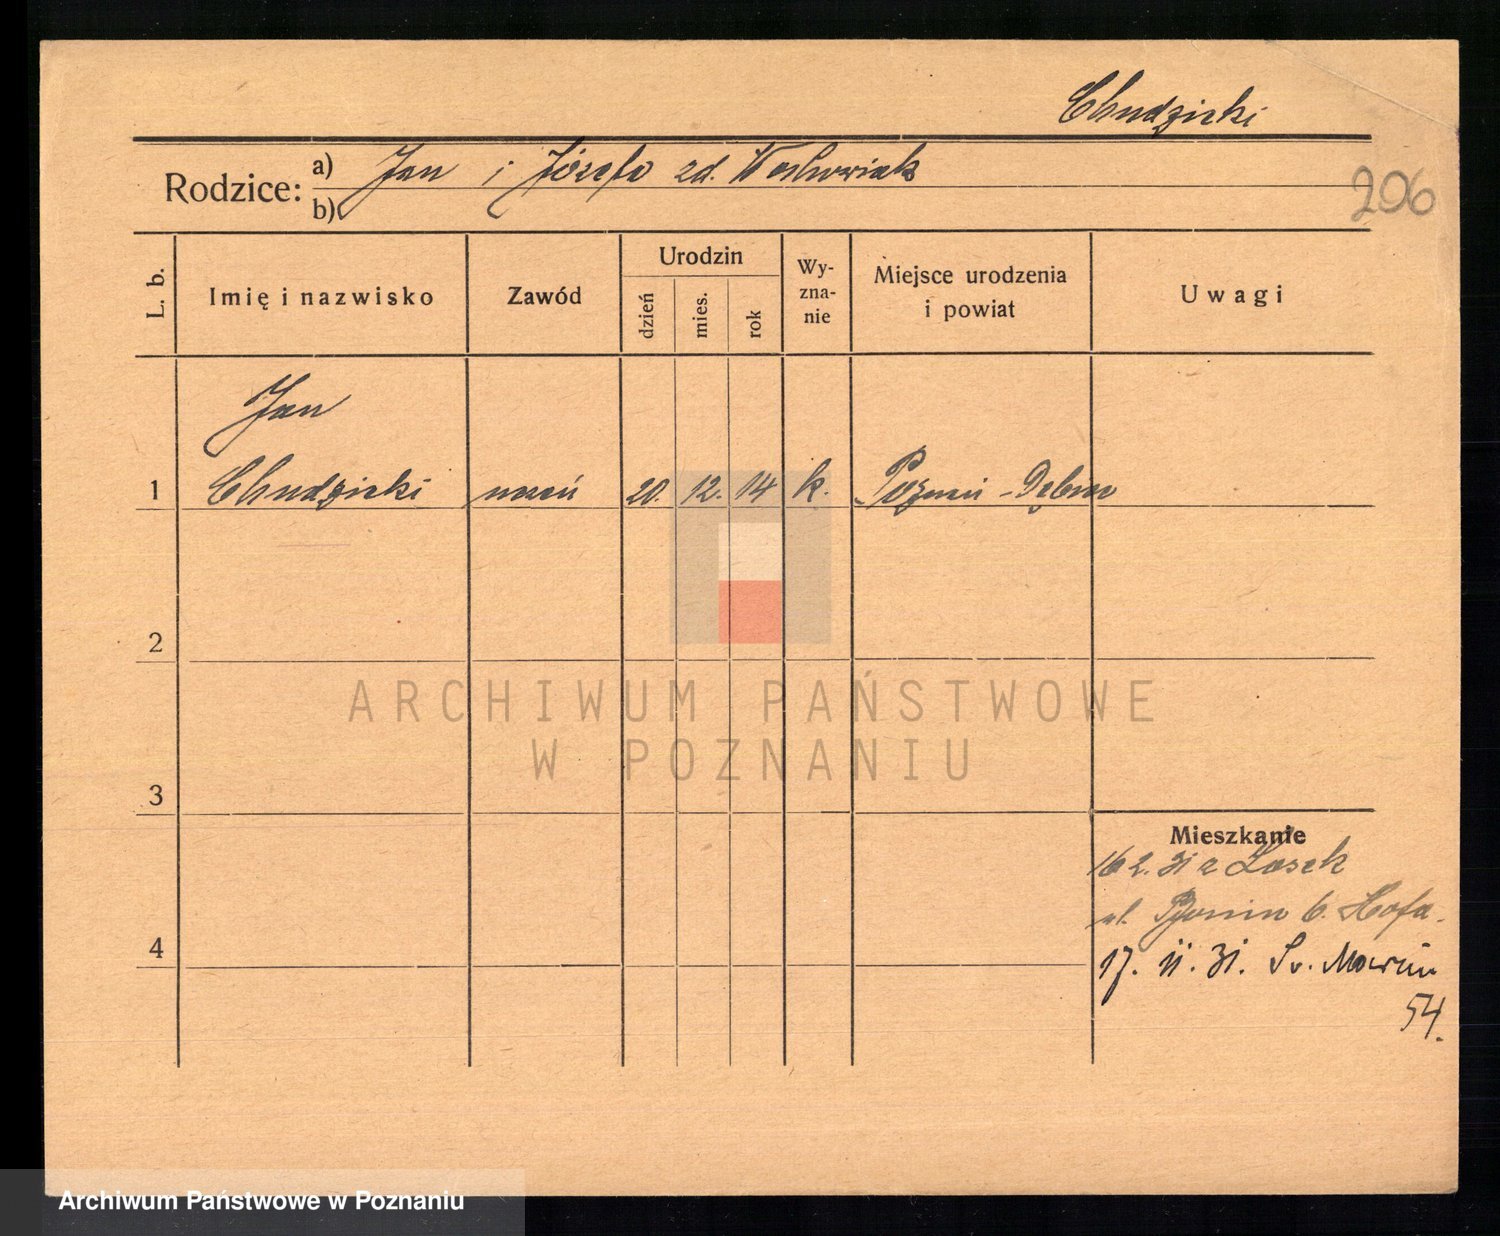 Chudzicki
Rodzice: a) Jan i Józefa zd.
b)
206
L. b.
Imię i nazwisko
Zawód
Urodzin
dzień
mies.
rok
Wy-
zna-
nie
Miejsce urodzenia
i powiat
Uwagi
Jan
1 Chudzicki uczeń 20. 12. 14 k. Poznań - Dębiec
2
3
4
Mieszkanie
16 2. 31 z Lasek
ul. 6.
17. II. 31. Św. Marcin
54.
ARCHIWUM PAŃSTWOWE
W POZNANIU
Archiwum Państwowe w Poznaniu